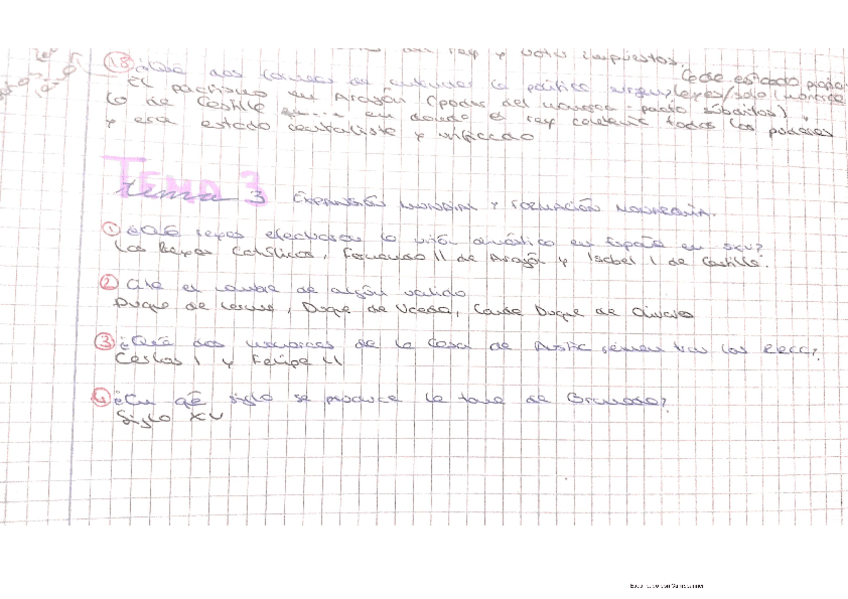 rey y votar impuestos.
18 ¿Qué dos formas de entender la política
El pactismo en Aragón (poder del monarca - pacto súbditos) y
lo de Castilla en donde el rey concentra todos los poderes
y era estado centralista y unificado
Cada estado propias
leyes/solo monarca
TEMA 3
tema 3 EXPANSIÓN MUNDIAL Y FORMACIÓN MONARQUÍA.
① ¿Qué reyes efectuaron la unión dinástica en España en s.XV?
Los Reyes Católicos, Fernando II de Aragón y Isabel I de Castilla.
② Cite el nombre de algún valido
Duque de Lerma, Duque de Uceda, Conde Duque de Olivares
③ ¿Qué dos monarcas de la Casa de Austria siguen tras los RRCC?
Carlos I y Felipe II
④ ¿En qué siglo se produce la toma de Granada?
Siglo XV
Escaneado con CamScanner